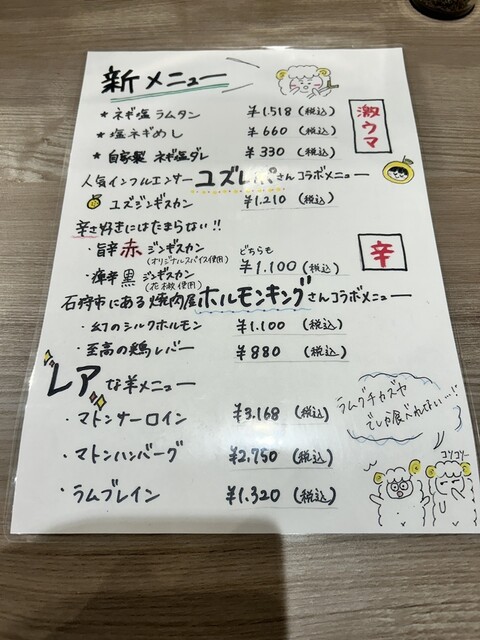 新メニュー
★ ネギ塩ラムタン ¥1.518 (税込)
★ 塩ネギめし ¥660 (税込)
★ 自家製 ネギ塩ダレ ¥330 (税込)
激ウマ
人気インフルエンサー ユズレポさんコラボメニュー
ユズジンギスカン ¥1.210 (税込)
辛さ好きにはたまらない!!
・旨辛赤ジンギスカン
(オリジナルスパイス使用)
どちらも
¥1.100 (税込)
・痺辛黒ジンギスカン
(花椒使用)
辛
石狩市にある焼肉屋ホルモンキングさんコラボメニュー
・幻のシルクホルモン ¥1.100 (税込)
・至高の鶏レバー ¥880 (税込)
レアな羊メニュー
・マトンサーロイン ¥3.168 (税込)
・マトンハンバーグ ¥2.750 (税込)
・ラムブレイン ¥1.320 (税込)
でしか食べれない…!
コソコソ